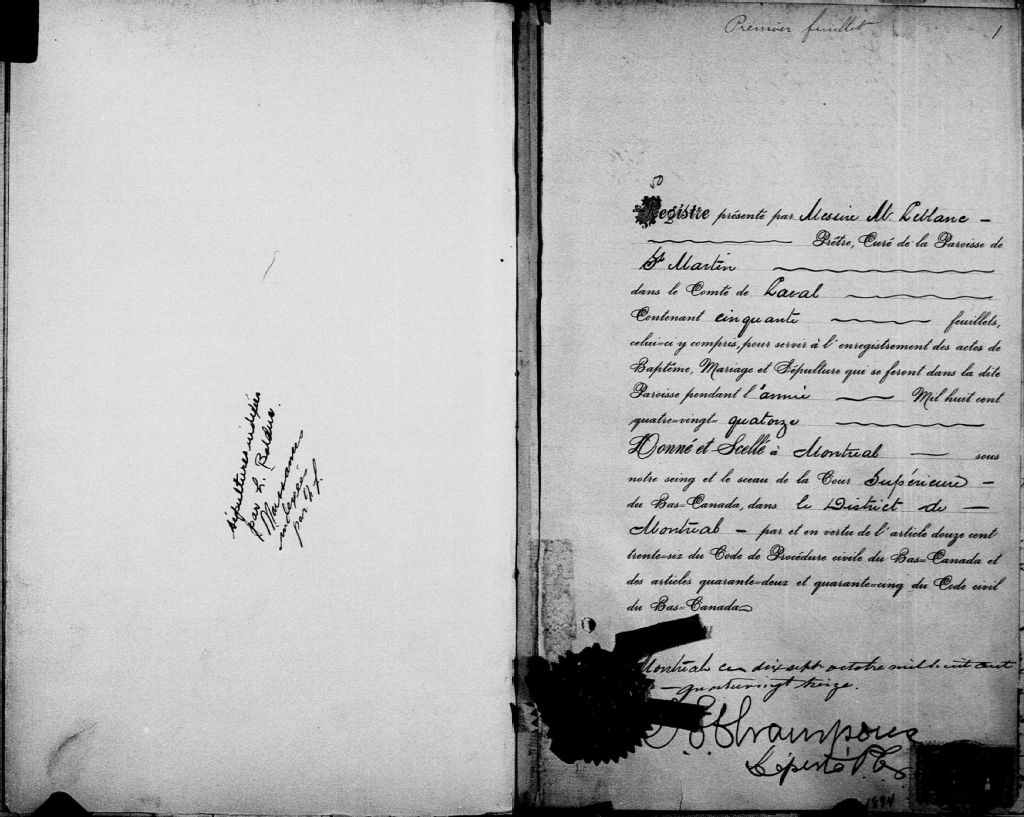 sépultures indexées
par L. Balduc.
Naissances
indexées
par
Premier feuillet
1
50
Registre présenté par Messire M. Leblanc –
Prêtre, Curé de la Paroisse de
St Martin
dans le Comté de Laval
Contenant cinquante feuillets,
celui-ci y compris, pour servir à l'enregistrement des actes de
Baptême, Mariage et Sépulture qui se feront dans la dite
Paroisse pendant l'année — Mil huit cent
quatre-vingt-quatorze
Donné et Scellé à Montréal — sous
notre seing et le sceau de la Cour Supérieure –
du Bas-Canada, dans le District de —
Montréal – par et en vertu de l'article douze cent
trente-six du Code de Procédure civile du Bas-Canada et
des articles quarante-deux et quarante-cinq du Code civil
du Bas-Canada
Montréal ce dixsept octobre mil huit cent
quatrevingt treize.
Champoux
Député P.
1894